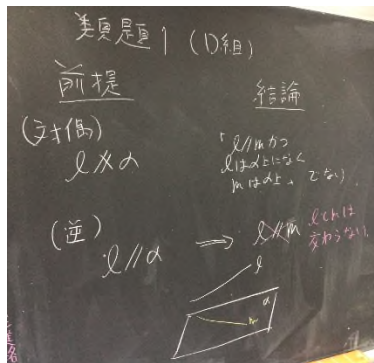 類題1 (D組)
前提
結論
(対偶)
l∦α
「l//mかつ
lはα上になく
mはα上」でない
(逆)
l//α ⇒ l//m
lとmは
交わらない
l
α
m